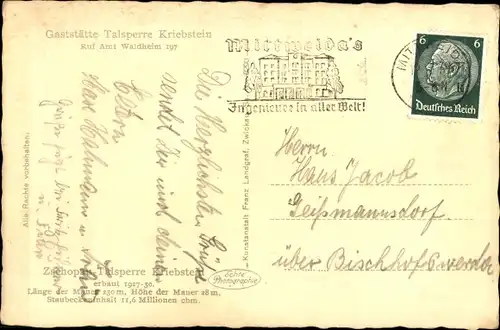 Gaststätte Talsperre Kriebstein
Ruf Amt Waldheim 197
Mittweida's
Ingenieure in aller Welt!
MITTWEIDA
6 6
Deutsches Reich
Die Herzlichsten Grüße
sendet Dir und deinen
Eltern
Hans
Herrn
Hans Jacob
Geißmannsdorf
über Bischofswerda
Alle Rechte vorbehalten.
Kunstanstalt Franz Landgraf, Zwickau
Echte
Photographie
Zschopau-Talsperre Kriebstein
erbaut 1927-30.
Länge der Mauer 230 m, Höhe der Mauer 28 m,
Staubeckeninhalt 11,6 Millionen cbm.